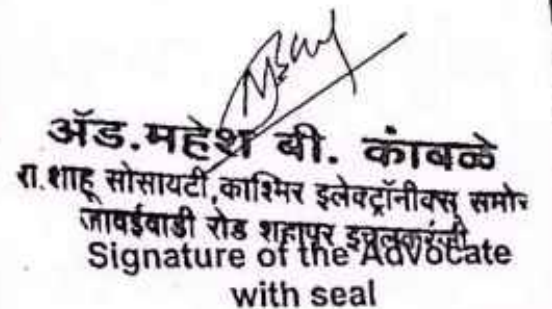 अ‍ॅड.महेश बी. कांबळे
रा.शाहू सोसायटी,काश्मिर इलेक्ट्रॉनीक्स् समोर
जावईवाडी रोड शहापूर इचलकरंजी
Signature of the Advocate
with seal